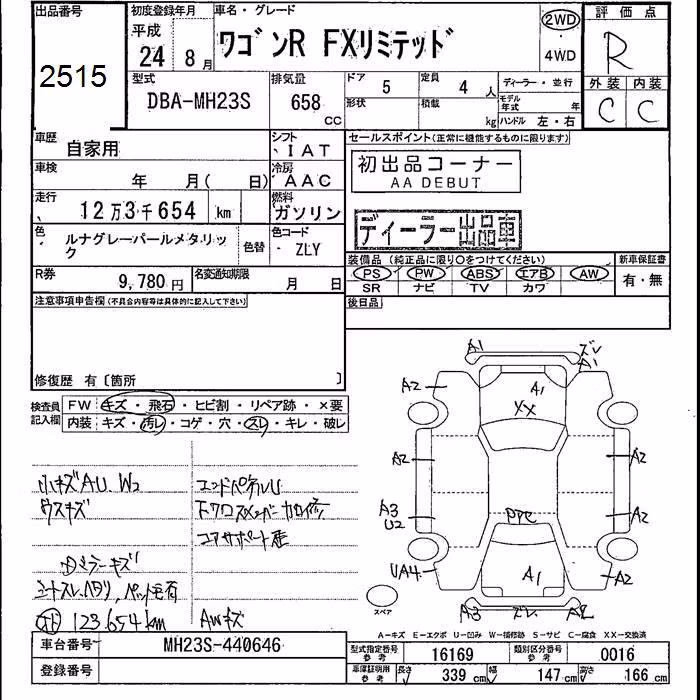 出品番号
2515
初度登録年月
平成
24 8月
車名・グレード
ワゴンR FXリミテッド
2WD
4WD
評価点
R
外装 内装
C C
型式
DBA-MH23S
排気量
658
CC
ドア 5
形状
定員 4 人
積載 kg
ディーラー・並行
モデル年式 年
ハンドル 左・右
車歴 自家用
シフト ・IAT
車検 年 月( 日)
冷房 AAC
走行 12万3千654 km
燃料 ガソリン
色 ルナグレーパールメタリック
色替
色C ・ ZLY
R券 9,780円
名変通知期限 月 日
セールスポイント(正常に機能するものに限ります)
初出品コーナー
AA DEBUT
ディーラー出品車
装備品 (純正品に限り○をつけてください)
PS PW ABS エアB AW
SR ナビ TV カワ
新車保証書
有・無
後日品
注意事項申告欄(不具合内容等は具体的に記入して下さい)
修復歴 有〔箇所 〕
検査員記入欄
FW キズ・飛石・ヒビ割・リペア跡・×要
内装 キズ・汚レ・コゲ・穴・スレ・キレ・破レ
小キズAU.W2
ウスキズ
シートスレ.ヘタリ
123.654km
エンドパネルU
コアサポート歪
AWキズ
A1 ズレ A1
A2 A1 A2
XX
A2 A2
A3 U2 PPC A2
UA4 A1 A2
A3 ズレ A2
スペア
A-キズ E-エクボ U-凹み W-補修跡 S-サビ C-腐食 XX-交換済
車台番号 MH23S-440646
登録番号
型式指定番号 参考 16169
類別区分番号 参考 0016
車庫証明用 参考 長さ 339cm 幅 147cm 高さ 166cm